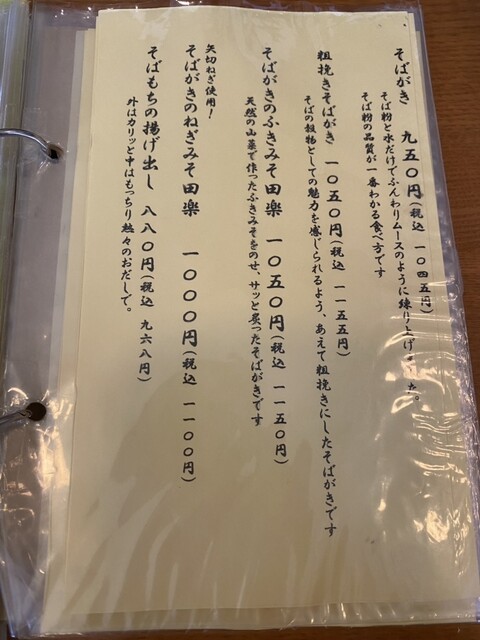 そばがき　九五〇円（税込　一〇四五円）
そば粉と水だけでふんわりムースのように練り上げました。
そば粉の品質が一番わかる食べ方です
粗挽きそばがき　一〇五〇円（税込　一一五五円）
そばの穀物としての魅力を感じられるよう、あえて粗挽きにしたそばがきです
そばがきのふきみそ田楽　一〇五〇円（税込　一一五〇円）
天然の山菜で作ったふきみそをのせ、サッと炙ったそばがきです
矢切ねぎ使用！
そばがきのねぎみそ田楽　一〇〇〇円（税込　一一〇〇円）
そばもちの揚げ出し　八八〇円（税込　九六八円）
外はカリッと中はもっちり熱々のおだしで。